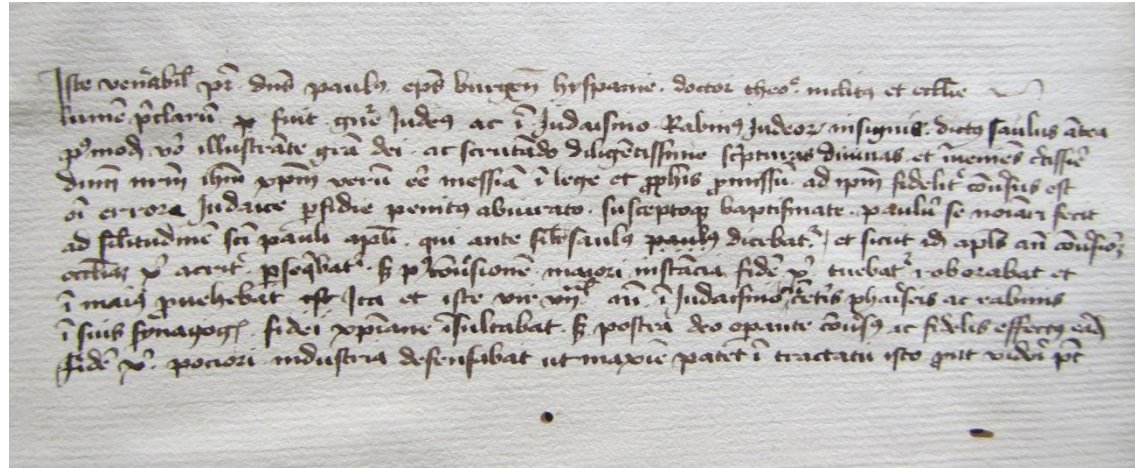 Iste ven̄abil' pr̄. dn̄s paulꝯ ep̄s burgen̄ hyspanie. doctor theo. inclitꝯ et eccl̄ie
lumē p̄clarū fuit gn̄re Judeꝯ ac ī Judaismo Rabinꝯ Judeor. insignis. dictꝯ saulus ātea
pꝰmodū vō illustrāte grā dei. ac scrutādo diligētissime sc̄pturas diuinas. et īueniēs c̄tissīe
dn̄m nr̄m ih̄m xp̄m verū eē messiā ī lege et ꝓph̄is ꝓmissū. ad ip̄m fidelit̄ cōu̇sus est
oī errore Judaice ꝑfidie penitꝯ abiurato. susceptoqꝫ baptismate. paulū se noīari fecit
ad sil̄itudinē sc̄i pauli ap̄li. qui ante saulꝯ dicebat̄. et sicut id ap̄ls an̄ cōu̇sionē
eccl̄iaꝫ xͥ acrit̄ ꝑseq̄bat̄. sꝫ pꝰ cōu̇sionē maiori instācia fidē xͥ tuebat̄ roborabat et
ī maiꝯ ꝓuehebat Ita et iste vir vn̄l an̄ ī Judaismo cū cet̄is pharis̄eis ac rabinis
ī suis synagogꝭ. fidei xp̄iane īsultabat. sꝫ postea deo oꝑante cōu̇sꝯ ac fidelis effectꝯ eād
fidē xͥ. pociori industria defensabat ut maxīe patet ī tractatu isto ꝓut videri pt̄